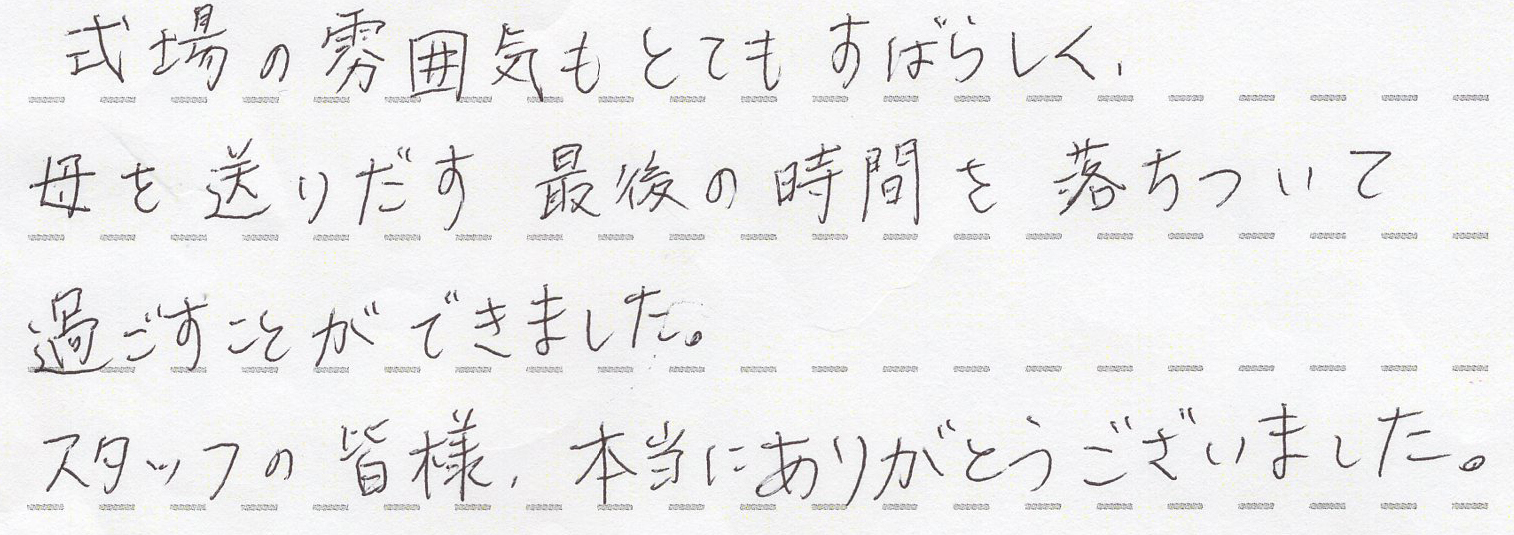 式場の雰囲気もとてもすばらしく、
母を送りだす最後の時間を落ちついて
過ごすことができました。
スタッフの皆様、本当にありがとうございました。